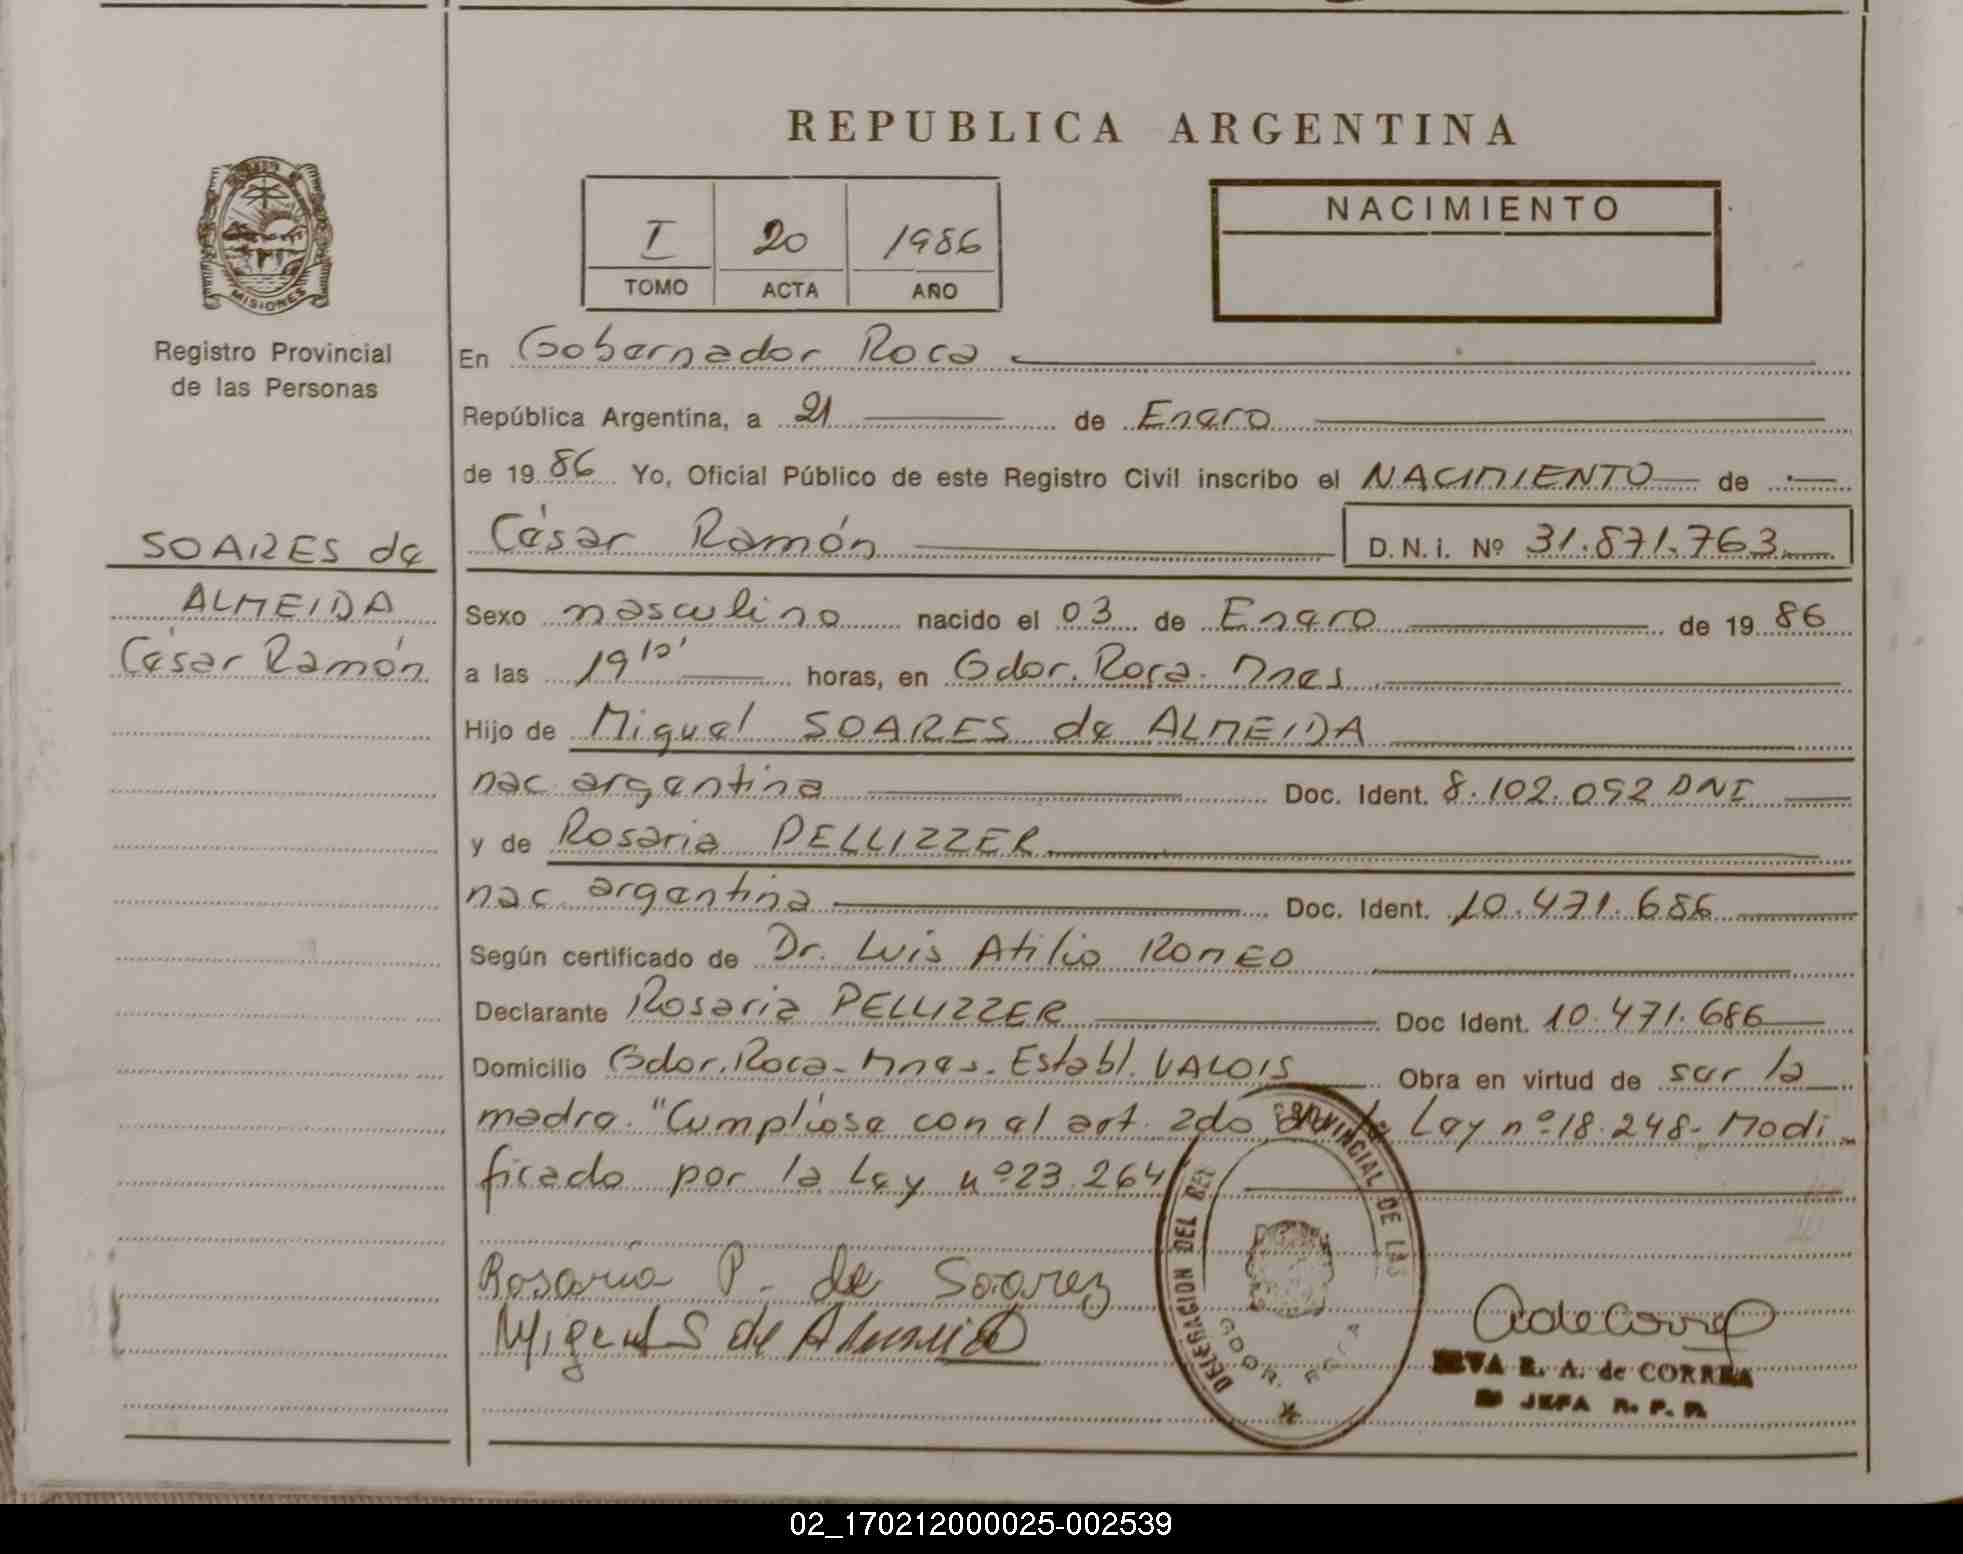 REPUBLICA ARGENTINA
MISIONES
Registro Provincial
de las Personas
I 20 1986
TOMO ACTA AÑO
NACIMIENTO
En Gobernador Roca
República Argentina, a 21 de Enero
de 1986 Yo, Oficial Público de este Registro Civil inscribo el NACIMIENTO de
César Ramón D.N.i. Nº 31.871.763
SOARES de
ALMEIDA
César Ramón
Sexo masculino nacido el 03 de Enero de 1986
a las 19 10' horas, en Gdor. Roca. Mnes
Hijo de Miguel SOARES de ALMEIDA
nac argentina Doc. Ident. 8.102.092 DNI
y de Rosaria PELLIZZER
nac argentina Doc. Ident. 10.471.686
Según certificado de Dr. Luis Atilio ROMEO
Declarante Rosaria PELLIZZER Doc Ident. 10.471.686
Domicilio Gdor. Roca - Mnes. Establ. VALOIS Obra en virtud de ser la
madre. "Cumpliose con el art. 2do Ley nº 18.248- Modi
ficado por la Ley nº 23.264
Rosaria P. de Soarez
Miguel S de Almeida
DELEGACION DEL REG PROVINCIAL DE LAS
GDOR. ROCA
R. A. de CORREA
JEFA R. P. P.
02_170212000025-002539